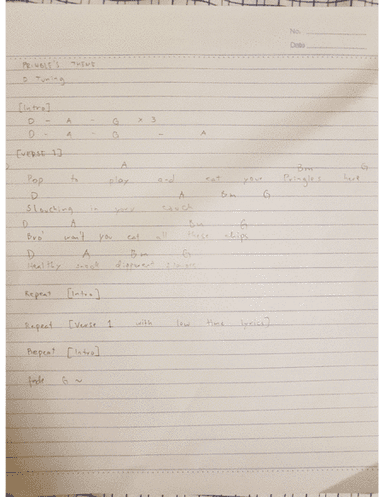 No.
Date
PRINGLE'S THEME
D Tuning
[Intro]
D - A - G x 3
D - A - G - A
[VERSE 1]
D A Bm G
Pop to play and eat your Pringles here
D A Bm G
Slouching in your couch
D A Bm G
Bro' won't you eat all those chips
D A Bm G
Healthy snack different
Repeat [Intro]
Repeat [Verse 1 with low tone lyrics]
Repeat [Intro]
fade G ~